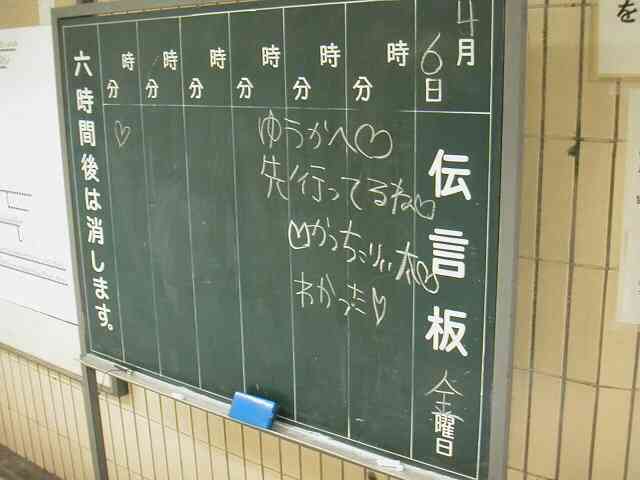 4月
6日
伝言板
金曜日
時 分
時 分
時 分
時 分
時 分
時 分
ゆうかへ♡
先行ってるね♡
わかった♡
六時間後は消します。
を